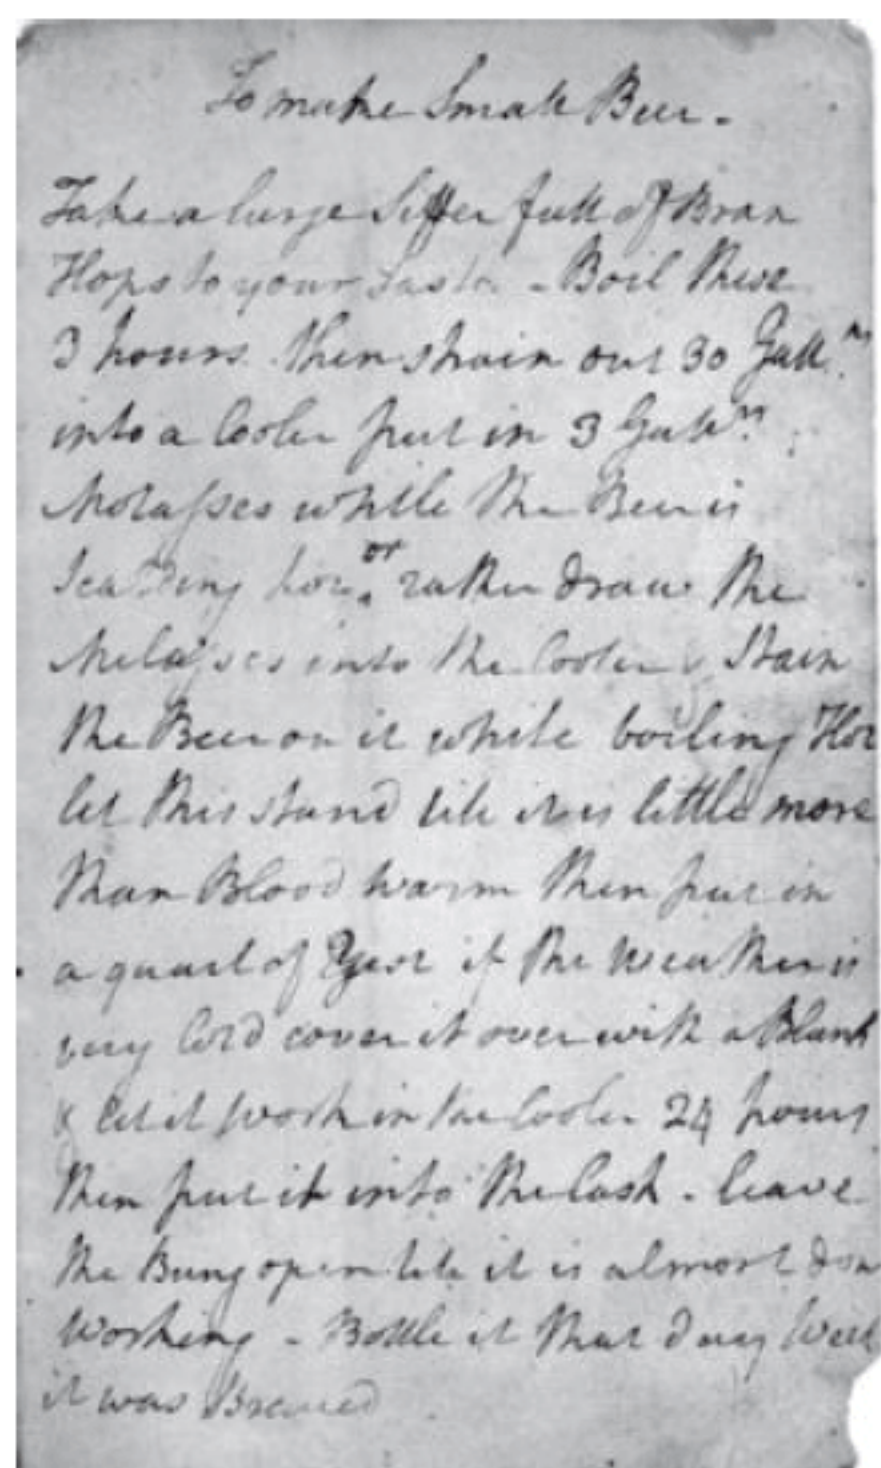 To make Small Beer.
Take a large Siffer full of Bran
Hops to your Taste - Boil these
3 hours. then strain out 30 Gall.ns
into a Cooler put in 3 Gallns
Molasses while the Beer is
Scalding hot. or rather draw the
Melasses into the Cooler & Stain
the Beer on it while boiling Hot
let this stand till it is little more
than Blood warm then put in
a quart of Yest if the weather is
very Cold cover it over with a Blank
& let it work in the Cooler 24 hours
then put it into the Cask. leave
the Bung open till it is almost don
working - Bottle it that day Week
it was Brewed